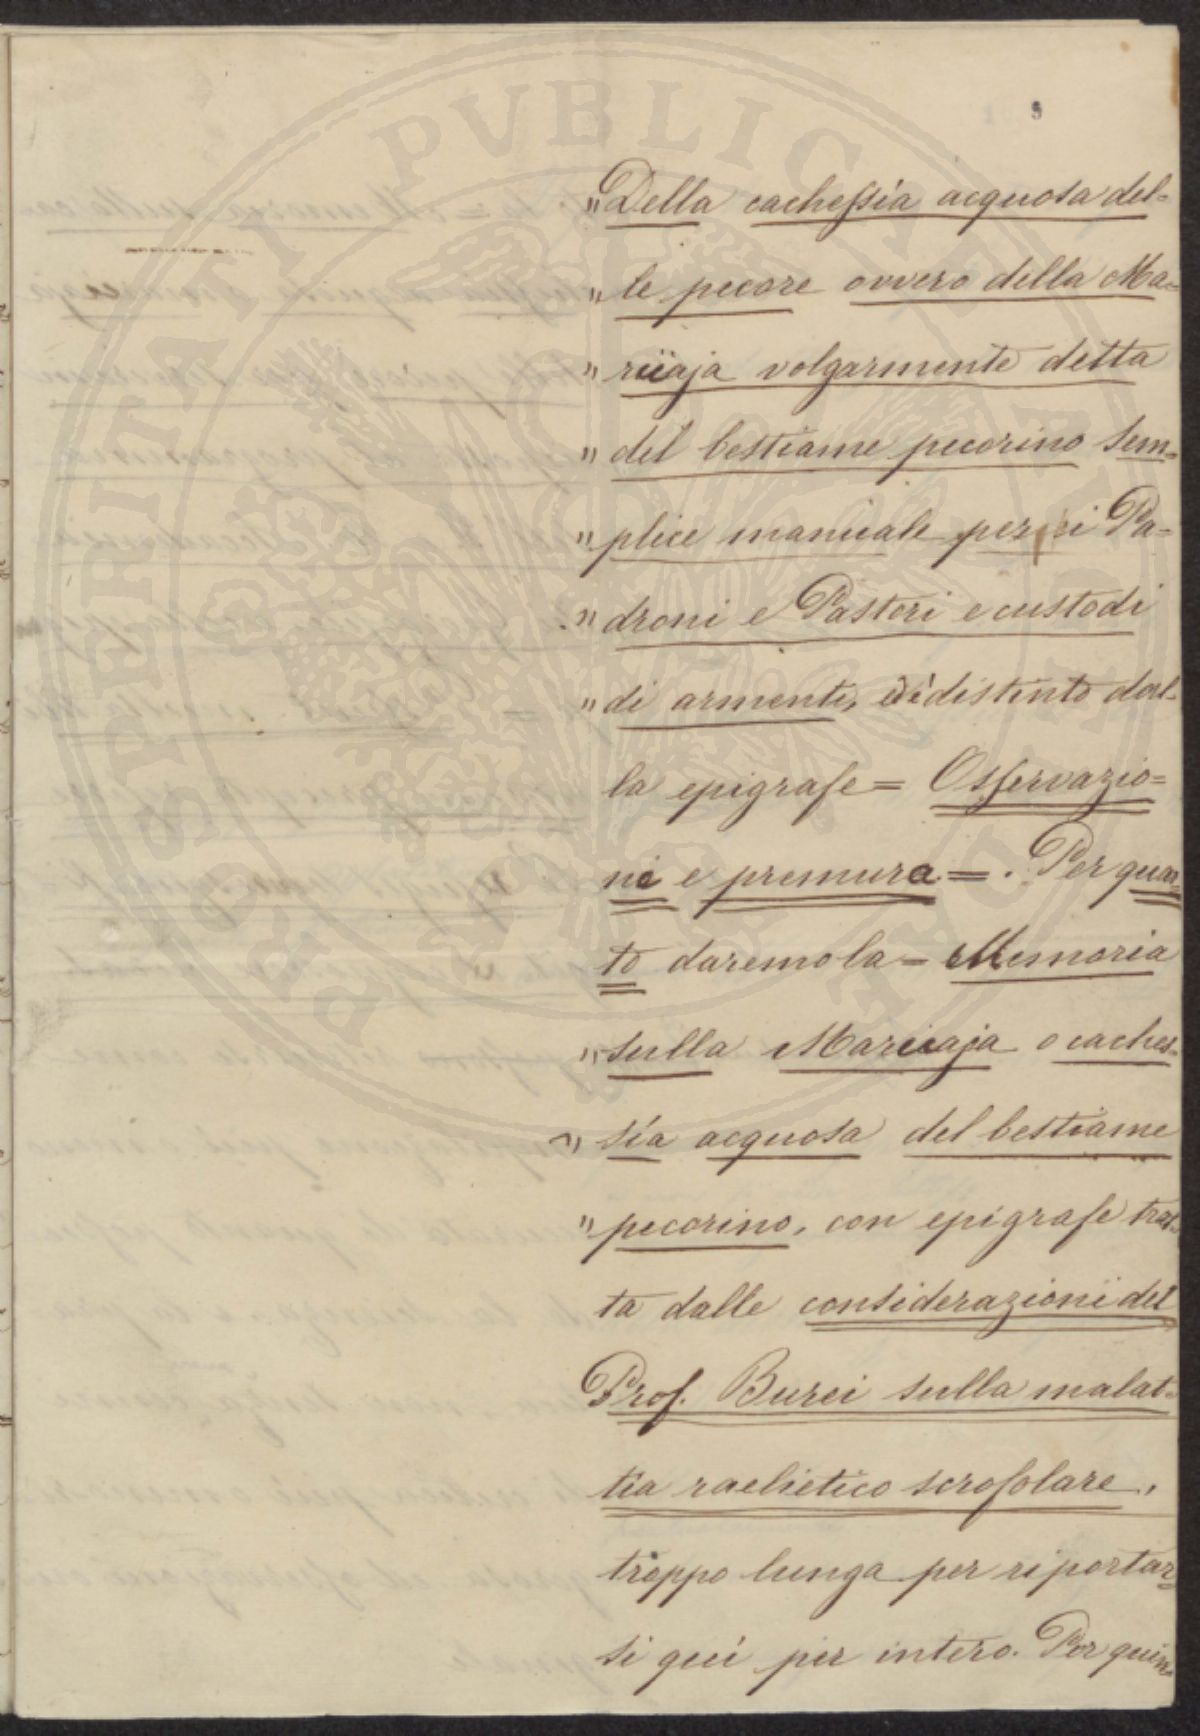 PROSPERITATI PUBLICAE AUGENDAE
"Della cachessia acquosa del=
"le pecore ovvero della Ma=
"rciaja volgarmente detta
"del bestiame pecorino sem=
"plice manuale per i Pa=
"droni e Pastori e custodi
"di armenti, distinto dal=
la epigrafe = Osservazio=
ni e premura =. Per quar=
to daremo la = Memoria
"sulla Marciaja o caches=
"sia acquosa del bestiame
"pecorino, con epigrafe trat=
ta dalle considerazioni del
Prof. Burci sulla malat=
tia rachitico scrofolare,
troppo lunga per riportar=
si quì per intero. Per quin=